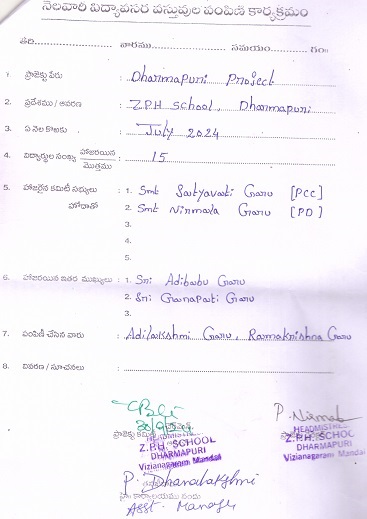 నెలవారీ విద్యావసర వస్తువుల పంపిణీ కార్యక్రమం
తేది.................... వారము.................... సమయం............ గం॥
1. ప్రాజెక్టు పేరు : Dharmapuri Project
2. ప్రదేశము / ఆవరణ : Z.P.H School, Dharmapuri
3. ఏ నెల కొఱకు : July 2024
4. విద్యార్థుల సంఖ్య హాజరయిన / మొత్తము : 15
5. హాజరైన కమిటీ సభ్యులు : 1. Smt Satyavati Garu [PCC]
హోదాతో 2. Smt Nirmala Garu [PD]
3.
4.
5.
6. హాజరయిన ఇతర ముఖ్యులు : 1. Sri Adibabu Garu
2. Sri Ganapati Garu
3.
7. పంపిణీ చేసిన వారు : Adilakshmi Garu, Ramakrishna Garu
8. వివరణ / సూచనలు :
P. Nirmala
ప్రాజెక్టు కమిటీ
HEADMISTRE
Z.P.H. SCHOOL
Z.P.H. SCHOC
DHARMAPURI
DHARMAPURI
Vizianagaram Mandal
Vizianagaram Mandal
P. Dhanalakshmi
Asst. Manager